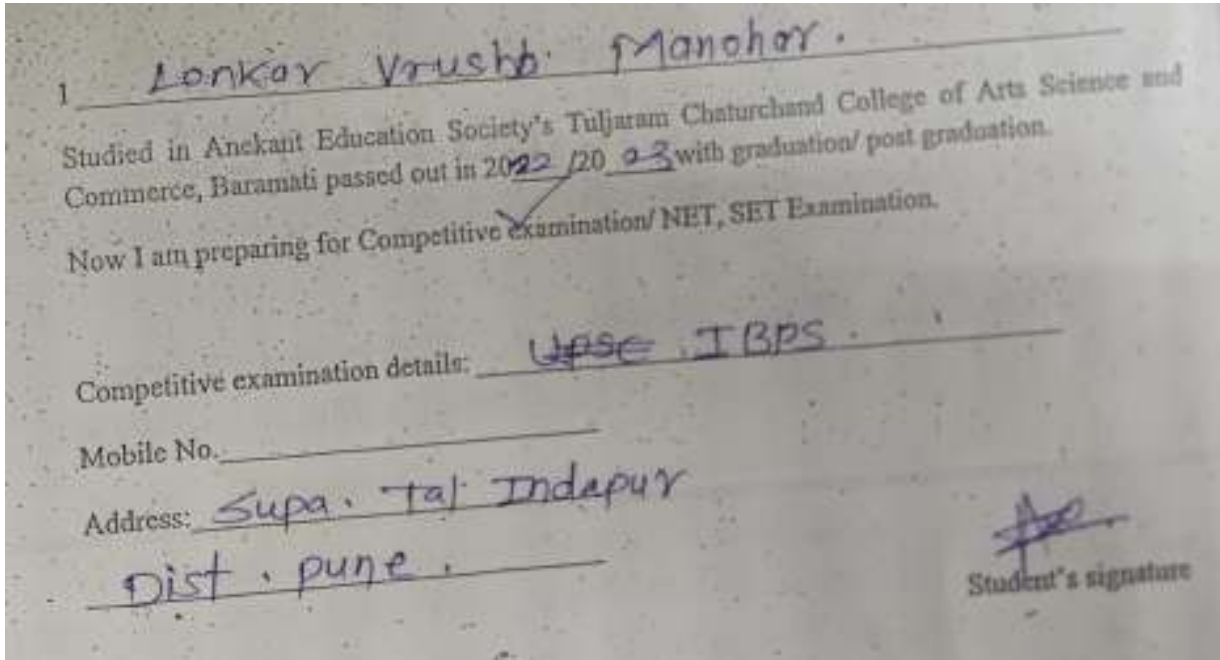 I Lonkar Vrushb. Manohar.
Studied in Anekant Education Society's Tuljaram Chaturchand College of Arts Science and
Commerce, Baramati passed out in 2022 /20 23 with graduation/ post graduation.
Now I am preparing for Competitive examination/ NET, SET Examination.
Competitive examination details: UPSC . IBPS .
Mobile No.
Address: Supa . Tal. Indapur
Dist . pune .
Student's signature